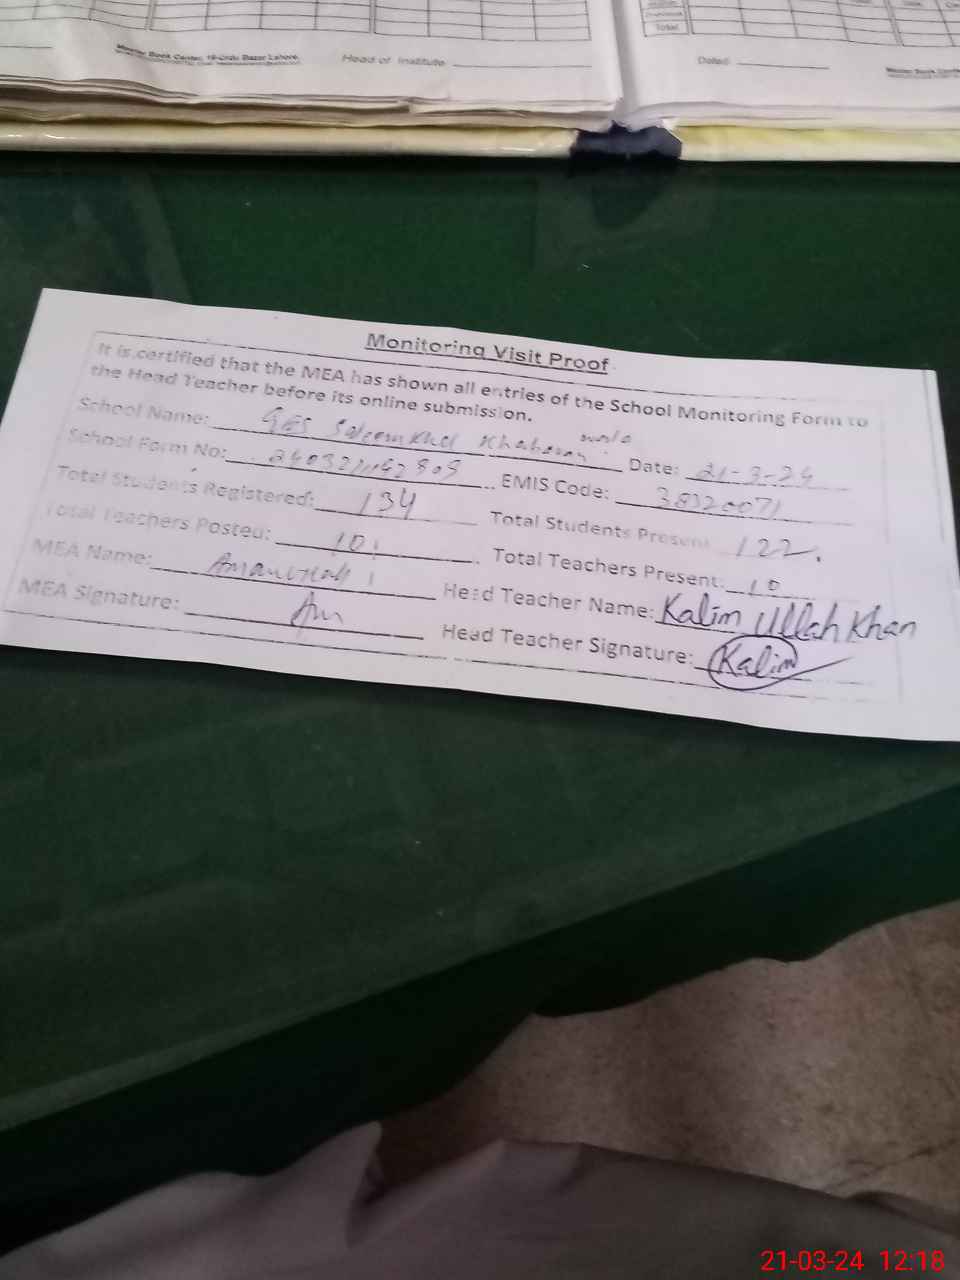 Total
Master Book Center, 19-Urdu Bazar Lahore.
Head of Institute
Dated:
Monitoring Visit Proof
It is certified that the MEA has shown all entries of the School Monitoring Form to
the Head Teacher before its online submission.
School Name: GES Date: 21-3-24
School Form No: EMIS Code: 38320071
Total Students Registered: 134 Total Students Present 122.
Total Teachers Posted: 10 Total Teachers Present: 10
MEA Name: Amanullah Head Teacher Name: Kalim Ullah Khan
MEA Signature: Am Head Teacher Signature: Kalim
21-03-24 12:18